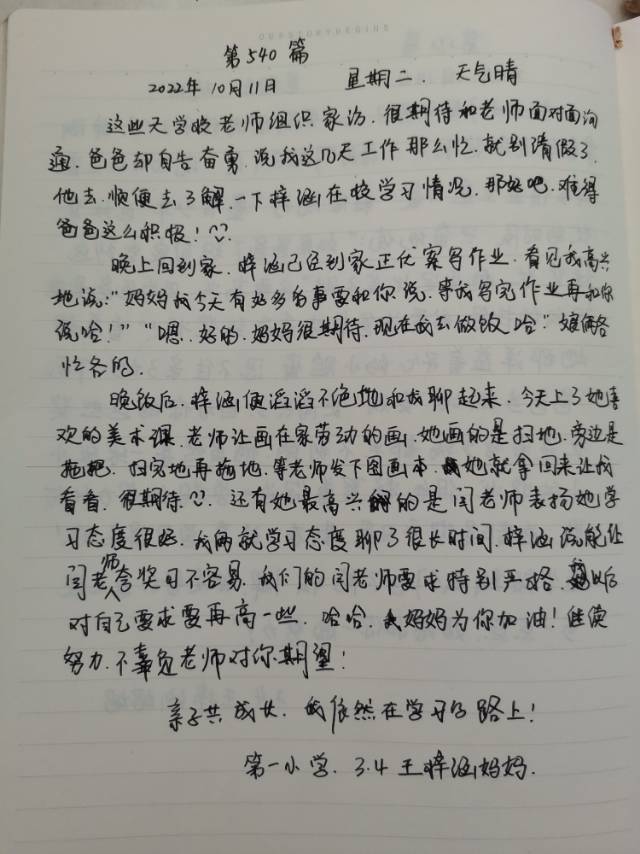 第540篇
2022年10月11日 星期二. 天气晴
这些天学校老师组织家访.很期待和老师面对面沟
通.爸爸却自告奋勇.说我这几天工作那么忙.就别请假了.
他去.顺便去了解.一下梓涵在校学习情况.那好吧.难得
爸爸这么积极!
晚上回到家.梓涵已经到家正伏案写作业.看见我高兴
地说:"妈妈我今天有好多事要和你说.等我写完作业再和你
说哈!""嗯.好的.妈妈很期待.现在我去做饭哈"娘俩各
忙各的.
晚饭后.梓涵便滔滔不绝地和我聊起来.今天上了她喜
欢的美术课.老师让画在家劳动的画.她画的是扫地.旁边是
拖把.扫完地再拖地.等老师发下图画本.她就拿回来让我
看看.很期待.还有她最高兴的是闫老师表扬她学
习态度很好.我俩就学习态度聊了很长时间.梓涵说能让
闫老师夸奖可不容易.我们的闫老师要求特别严格.以后
对自己要求要再高一些.哈哈.妈妈为你加油!继续
努力.不辜负老师对你期望!
亲子共成长.我依然在学习的路上!
第一小学.3.4王梓涵妈妈.